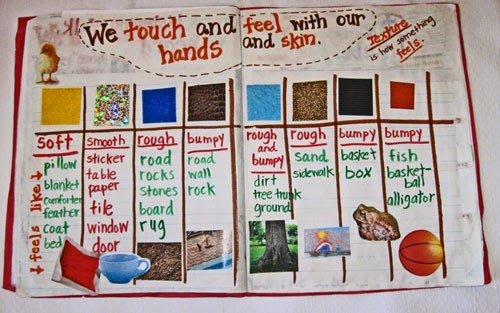 We touch and feel with our
hands and skin.
Texture
is how something
feels.
↓ feels like ↓
soft
pillow
blanket
comforter
feather
coat
bed
smooth
sticker
table
paper
tile
window
door
rough
road
rocks
stones
board
rug
bumpy
road
wall
rock
rough
and
bumpy
dirt
tree trunk
ground
rough
sand
sidewalk
bumpy
basket
box
bumpy
fish
basket-
ball
alligator